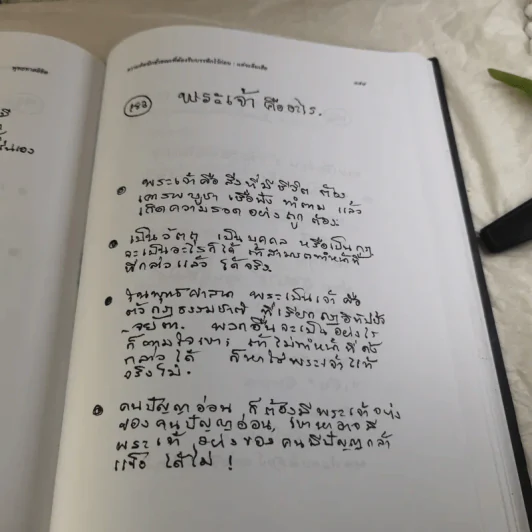 พุทธทาสภิกขุ
๑๘๒
พระเจ้า คืออะไร.
พระเจ้าคือ สิ่งที่มีชีวิต ต้อง
เคารพบูชา เชื่อฟัง ทำตาม แล้ว
เกิดความรอด อย่าง ถูก ต้อง
เป็นวัตถุ เป็นบุคคล หรือเป็นกฎ
จะเป็นอะไรก็ได้ ถ้าสามารถทำหน้าที่
ที่กล่าวแล้ว ได้จริง
ในพุทธศาสนา พระเป็นเจ้า คือ
ตัวกฎธรรมชาติ ที่เรียกกฎอิทัปปัจ
จยตา. พวกอื่นจะเป็น อย่างไร
ก็ตามใจเขา; ถ้าไม่ทำหน้าที่ ดัง
กล่าวได้ ก็หาใช่พระเจ้าแท้
จริงไม่.
คนปัญญาอ่อน ก็ต้องมี พระเจ้าอย่าง
ของคนปัญญาอ่อน,
พระเจ้า อย่างของ คนมีปัญญากล้า
แข็ง ได้ไม่ !